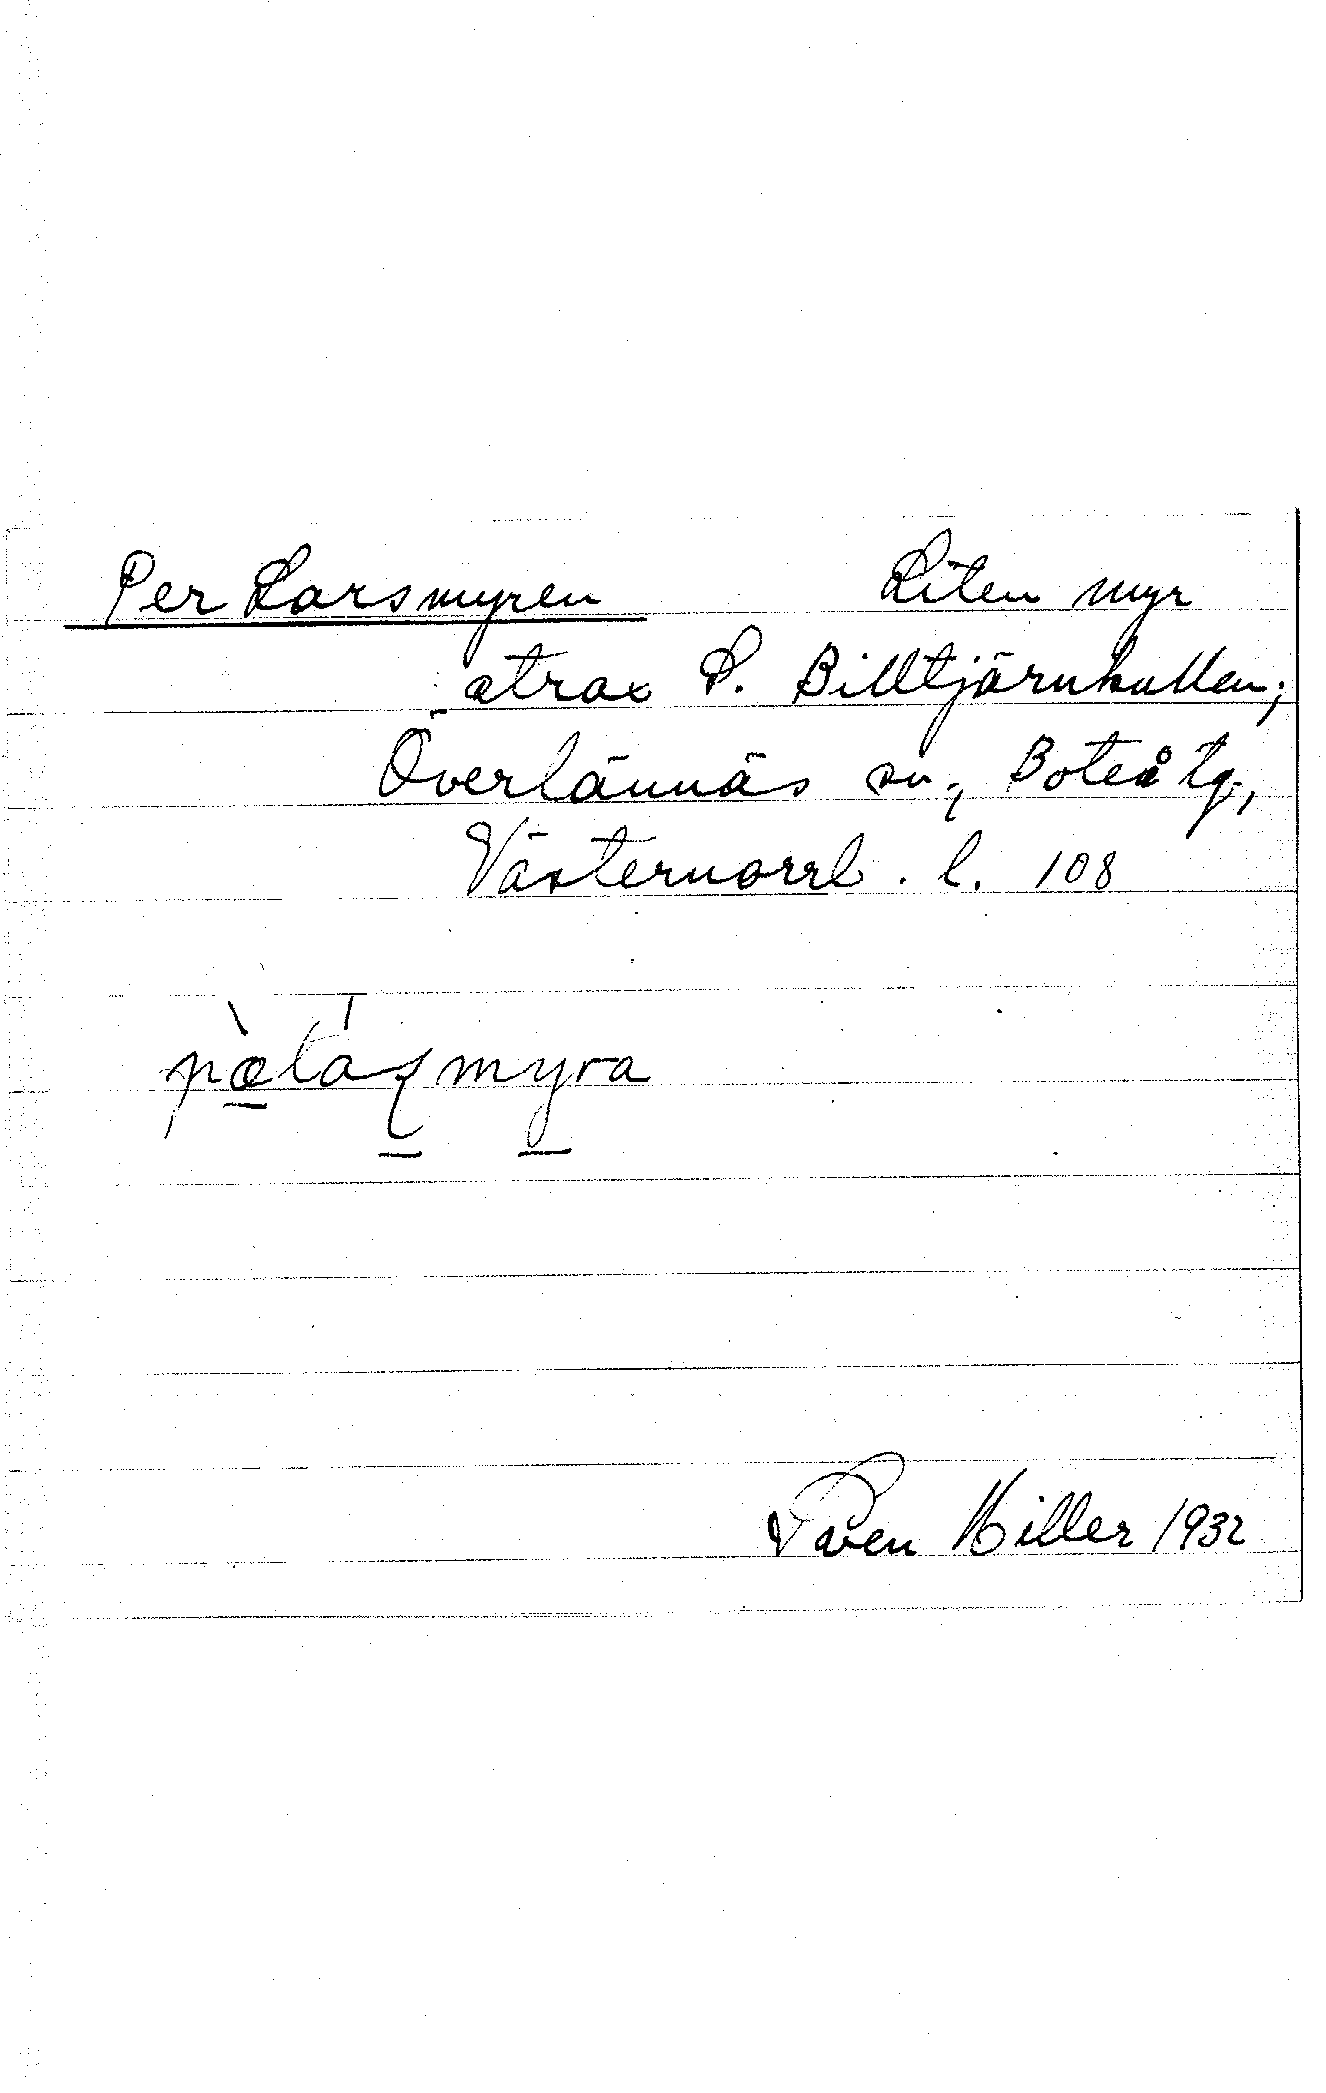 Per Larsmyren Liten myr
strax S. Billtjärnkullen;
Överlännäs sn., Boteå tg.,
Västernorrl. l. 108
Sven Hiller 1932